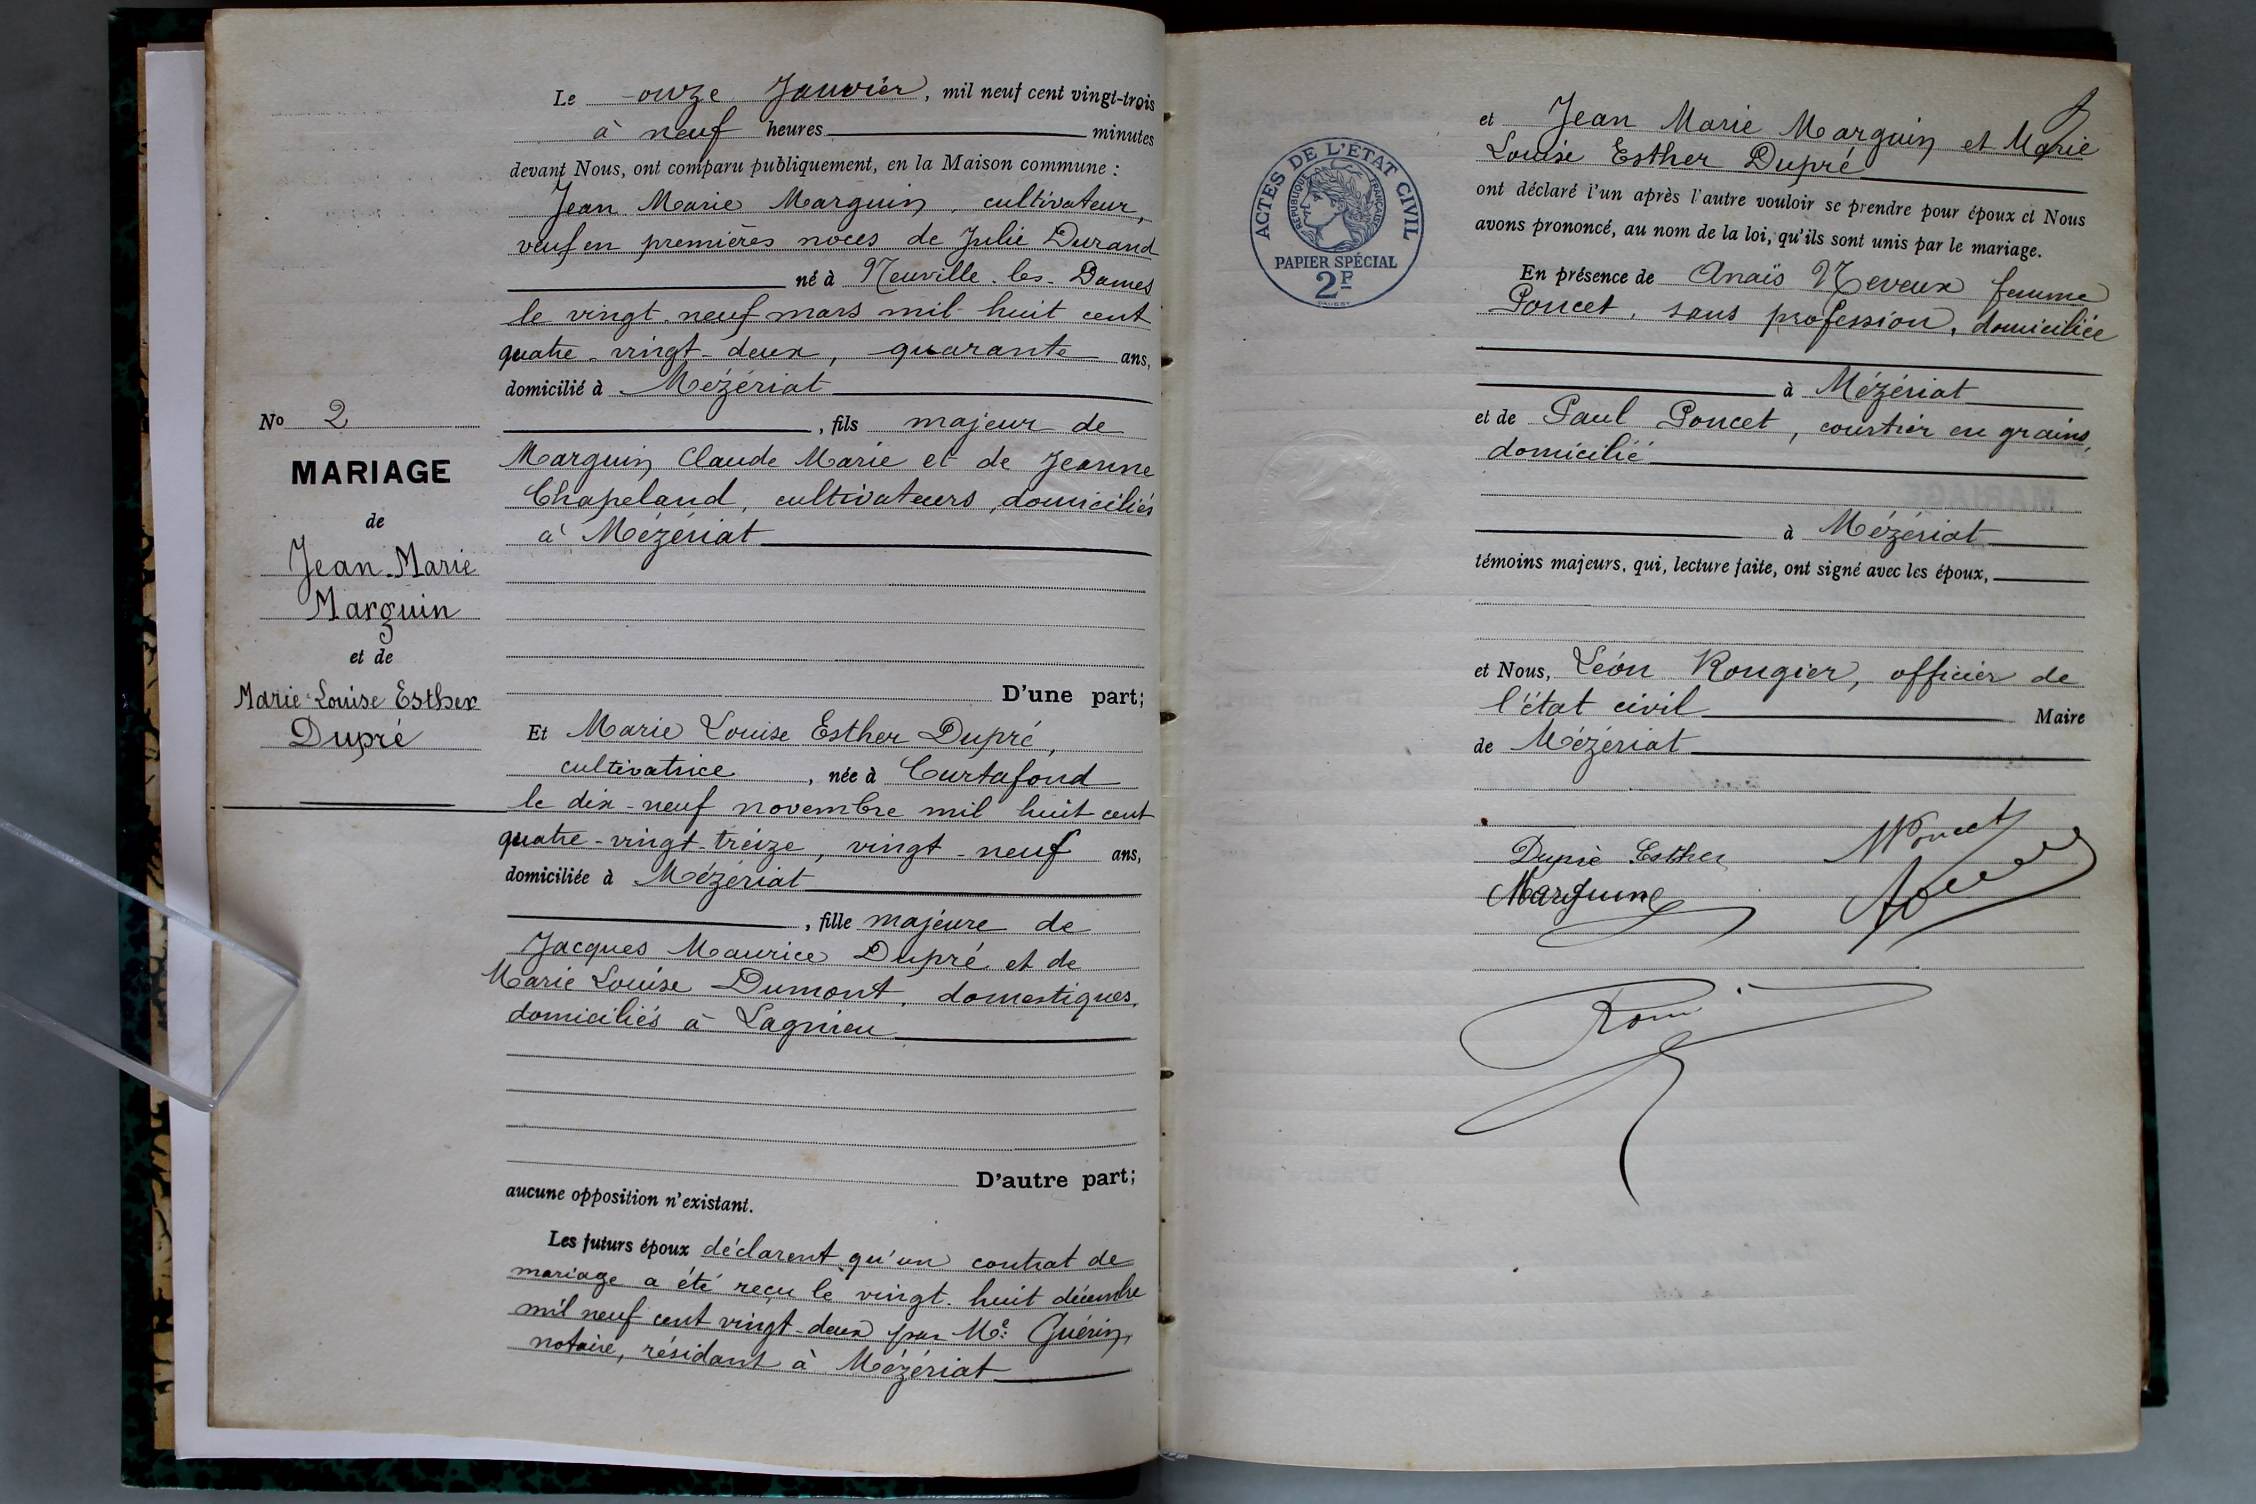 Le onze Janvier, mil neuf cent vingt-trois
à neuf heures minutes
devant Nous, ont comparu publiquement, en la Maison commune :
Jean Marie Marguin, cultivateur,
veuf en premières noces de Julie Durand
né à Neuville-les-Dames
le vingt-neuf mars mil huit cent
quatre-vingt-deux, quarante ans,
domicilié à Mézériat
, fils majeur de
Marguin Claude Marie et de Jeanne
Chapeland, cultivateurs, domiciliés
à Mézériat
D'une part;
No 2
MARIAGE
de
Jean-Marie
Marguin
et de
Marie-Louise Esther
Dupré
Et Marie Louise Esther Dupré,
cultivatrice, née à Curtafond
le dix-neuf novembre mil huit cent
quatre-vingt-treize, vingt-neuf ans,
domiciliée à Mézériat
, fille majeure de
Jacques Maurice Dupré et de
Marie Louise Dumont, domestiques,
domiciliés à Lagnieu
D'autre part;
aucune opposition n'existant.
Les futurs époux déclarent qu'un contrat de
mariage a été reçu le vingt-huit décembre
mil neuf cent vingt-deux par Me Guérin,
notaire, résidant à Mézériat
ACTES DE L'ÉTAT CIVIL
RÉPUBLIQUE FRANÇAISE
PAPIER SPÉCIAL
2F
et Jean Marie Marguin et Marie
Louise Esther Dupré
ont déclaré l'un après l'autre vouloir se prendre pour époux et Nous
avons prononcé, au nom de la loi, qu'ils sont unis par le mariage.
En présence de Anaïs Neveux femme
Poncet, sans profession, domiciliée
à Mézériat
et de Paul Poncet, courtier en grains,
domicilié
à Mézériat
témoins majeurs, qui, lecture faite, ont signé avec les époux,
et Nous, Léon Rougier, officier de
l'état civil Maire
de Mézériat
Dupré Esther
Marguin